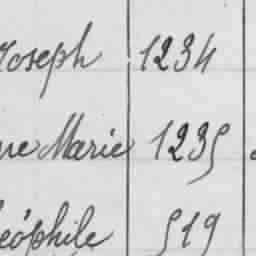 Joseph 1234
ne Marie 1235
éophile 519